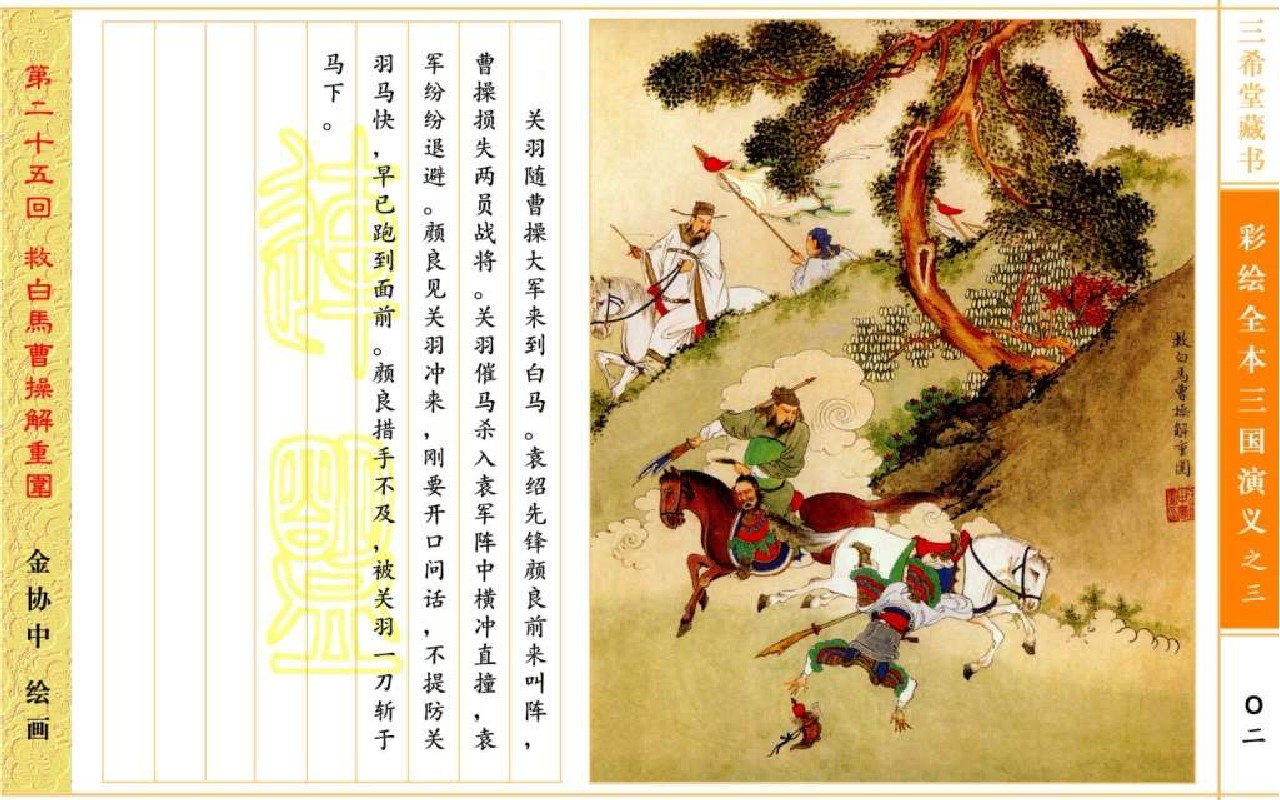 三希堂藏书
彩绘全本三国演义之三
〇二
救白馬曹操解重圍
关羽随曹操大军来到白马。袁绍先锋颜良前来叫阵，
曹操损失两员战将。关羽催马杀入袁军阵中横冲直撞，袁
军纷纷退避。颜良见关羽冲来，刚要开口问话，不提防关
羽马快，早已跑到面前。颜良措手不及，被关羽一刀斩于
马下。
第二十五回 救白馬曹操解重圍
金协中 绘画